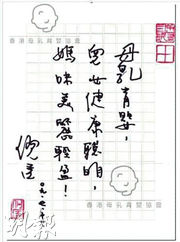 香港母乳育嬰協會
母乳育嬰，
兒女健康聰明，
媽咪美麗輕盈！
香港母乳育嬰協會